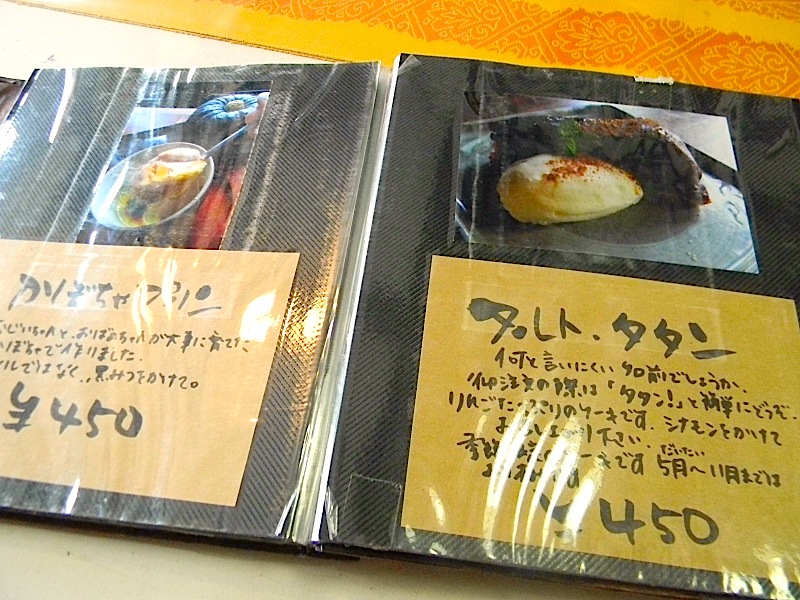 かぼちゃプリン
おじいちゃんと、おばあちゃんが大事に育てた、
かぼちゃで作りました。
ルではなく、黒みつをかけて。
¥450
タルト・タタン
何と言いにくい名前でしょうか、
御注文の際は「タタン!」と簡単にどうぞ。
りんごたっぷりのケーキです。シナモンをかけて
お召し上り下さい。
季節 ケーキです だいたい 5月〜11月までは
¥450